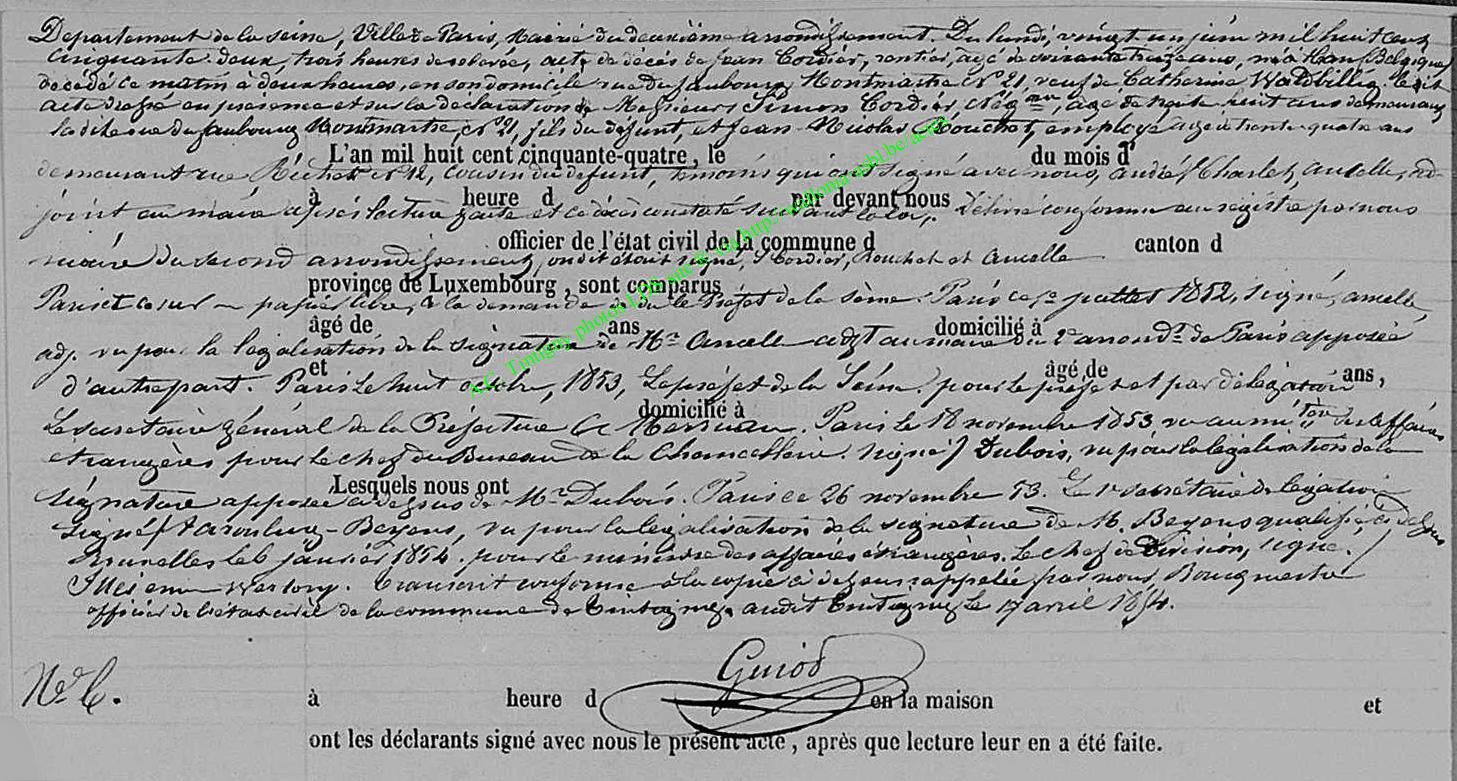 Departement de la seine, Ville de Paris, Mairie du deuxième arrondissement. Du lundi, vingt un juin mil huit cent
cinquante deux, trois heures de relevée, acte de décès de Jean Cordier, rentier, agé de soixante treize ans, né à Han (Belgique)
décédé ce matin à deux heures, en son domicile rue du faubourg Montmartre N° 21, veuf de Catherine Waldbillig. Le dit
acte dressé en présence et sur la déclaration de Messieurs Simon Cordier, Nég.ant, agé de trente huit ans demeurant
la dite rue du faubourg Montmartre, n° 21, fils du défunt, et Jean Nicolas Rouchet, employé agé de trente quatre ans
L'an mil huit cent cinquante-quatre, le du mois d'
demeurant rue Richer n° 12, cousin du défunt, témoins qui ont signé avec nous, andré Charles, ancelle, ad-
à heure d par devant nous
joint au maire après lecture faite et ce décès constaté suivant la loi. Délivré conforme au registre par nous
officier de l'état civil de la commune d canton d
maire du second arrondissement, on dit était signé, S Cordier, Rouchet et ancelle
province de Luxembourg, sont comparus
Paris et ce sur papier libre, à la demande de le Préfet de la seine. Paris ce juillet 1852, signé, ancelle,
âgé de ans domicilié à
adj. vu pour la légalisation de la signature de Mr ancelle adjt au maire du 2e arrondt de Paris apposée
et âgé de ans,
d'autre part. Paris Le huit octobre, 1853, Le préfet de la Seine, pour le préfet et par délégation
domicilié à
Le secrétaire général de la Préfecture C Merruau. Paris le 18 novembre 1853 vu au des affaires
étrangères pour le chef du Bureau de la Chancellerie. signé) Dubois, vu pour la légalisation de la
Lesquels nous ont
signature apposée ci dessus de Mr Dubois. Paris ce 26 novembre 53. Le 1er secrétaire de légation
signé) Beyens, vu pour la légalisation de la signature de M. Beyens qualifié ci dessus
Bruxelles le 6 janvier 1854. pour le ministre des affaires étrangères. Le chef de Division, signé)
Transcrit conforme à la copie ci dessus rappelée par nous,
officier de l'état civil de la commune de Tintigny, audit Tintigny le 17 avril 1854.
Guiod
N° 6.
à heure d en la maison et
ont les déclarants signé avec nous le présent acte, après que lecture leur en a été faite.